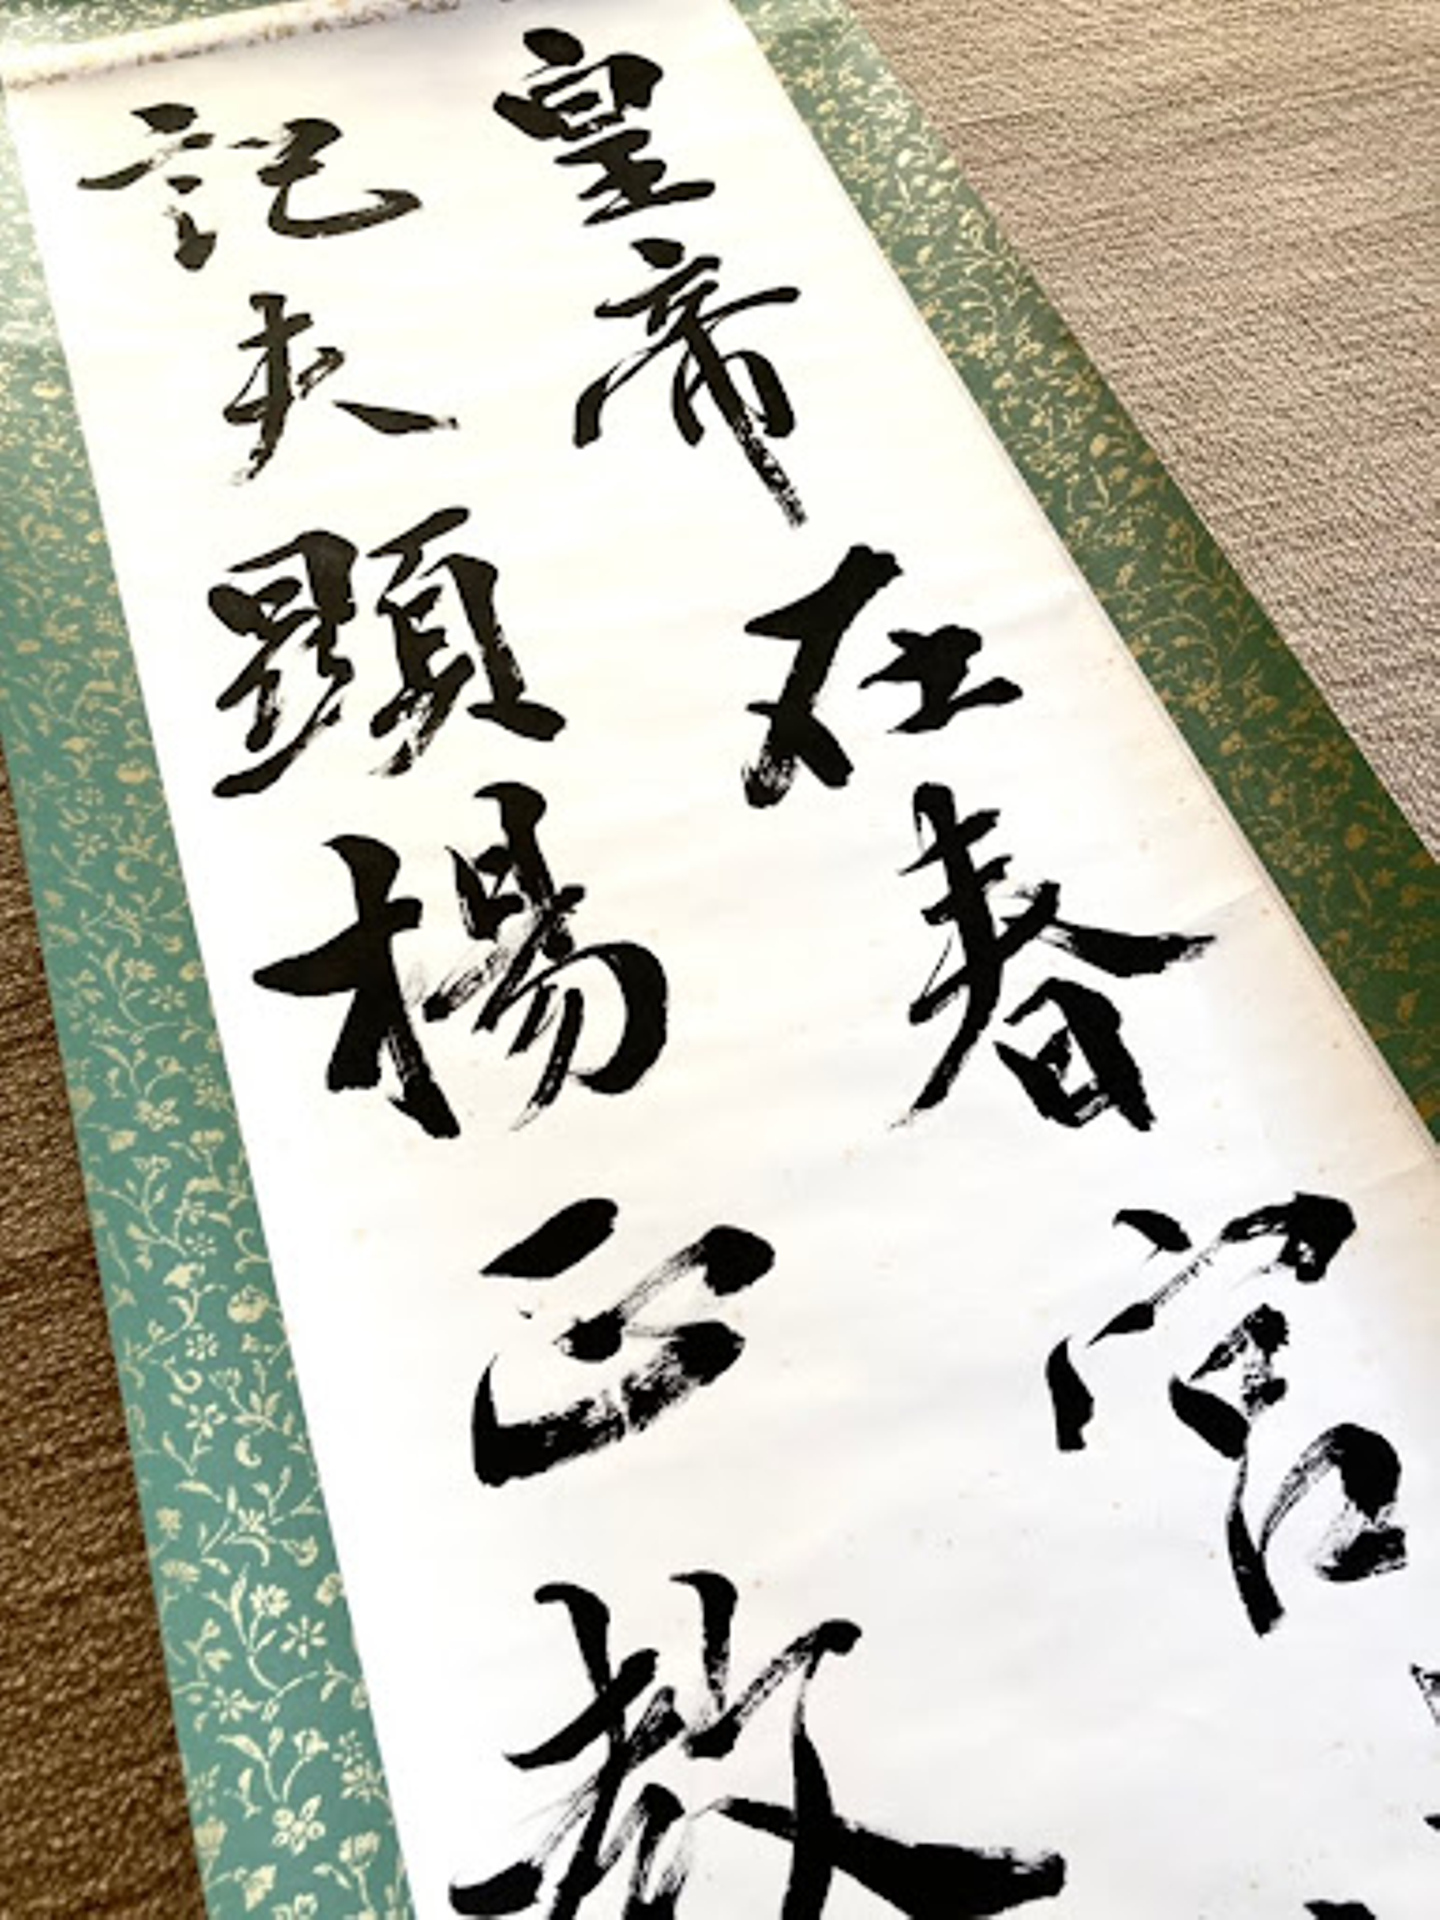 皇帝在春宮
記夫顕揚正教